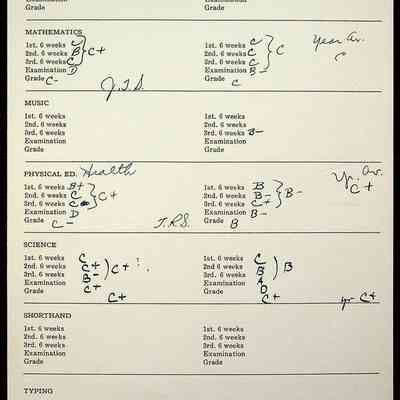 Examination Examination
Grade Grade
MATHEMATICS
1st. 6 weeks C 1st. 6 weeks C Year Av.
2nd. 6 weeks B C+ 2nd. 6 weeks C C C
3rd. 6 weeks C 3rd. 6 weeks C
Examination D Examination B-
Grade C- Grade C
J.T.S.
MUSIC
1st. 6 weeks 1st. 6 weeks
2nd. 6 weeks 2nd. 6 weeks
3rd. 6 weeks 3rd. 6 weeks B-
Examination Examination
Grade Grade
PHYSICAL ED. Health Yr. Av.
1st. 6 weeks B+ 1st. 6 weeks B C+
2nd. 6 weeks C C+ 2nd. 6 weeks B- B-
3rd. 6 weeks C 3rd. 6 weeks C+
Examination D Examination B-
Grade C- T.R.S. Grade B
SCIENCE
1st. 6 weeks C 1st. 6 weeks C
2nd. 6 weeks C+ C+ 2nd 6 weeks B B
3rd. 6 weeks B- 3rd. 6 weeks A
Examination C+ Examination D
Grade C+ Grade C+ yr C+
SHORTHAND
1st. 6 weeks 1st. 6 weeks
2nd. 6 weeks 2nd. 6 weeks
3rd. 6 weeks 3rd. 6 weeks
Examination Examination
Grade Grade
TYPING